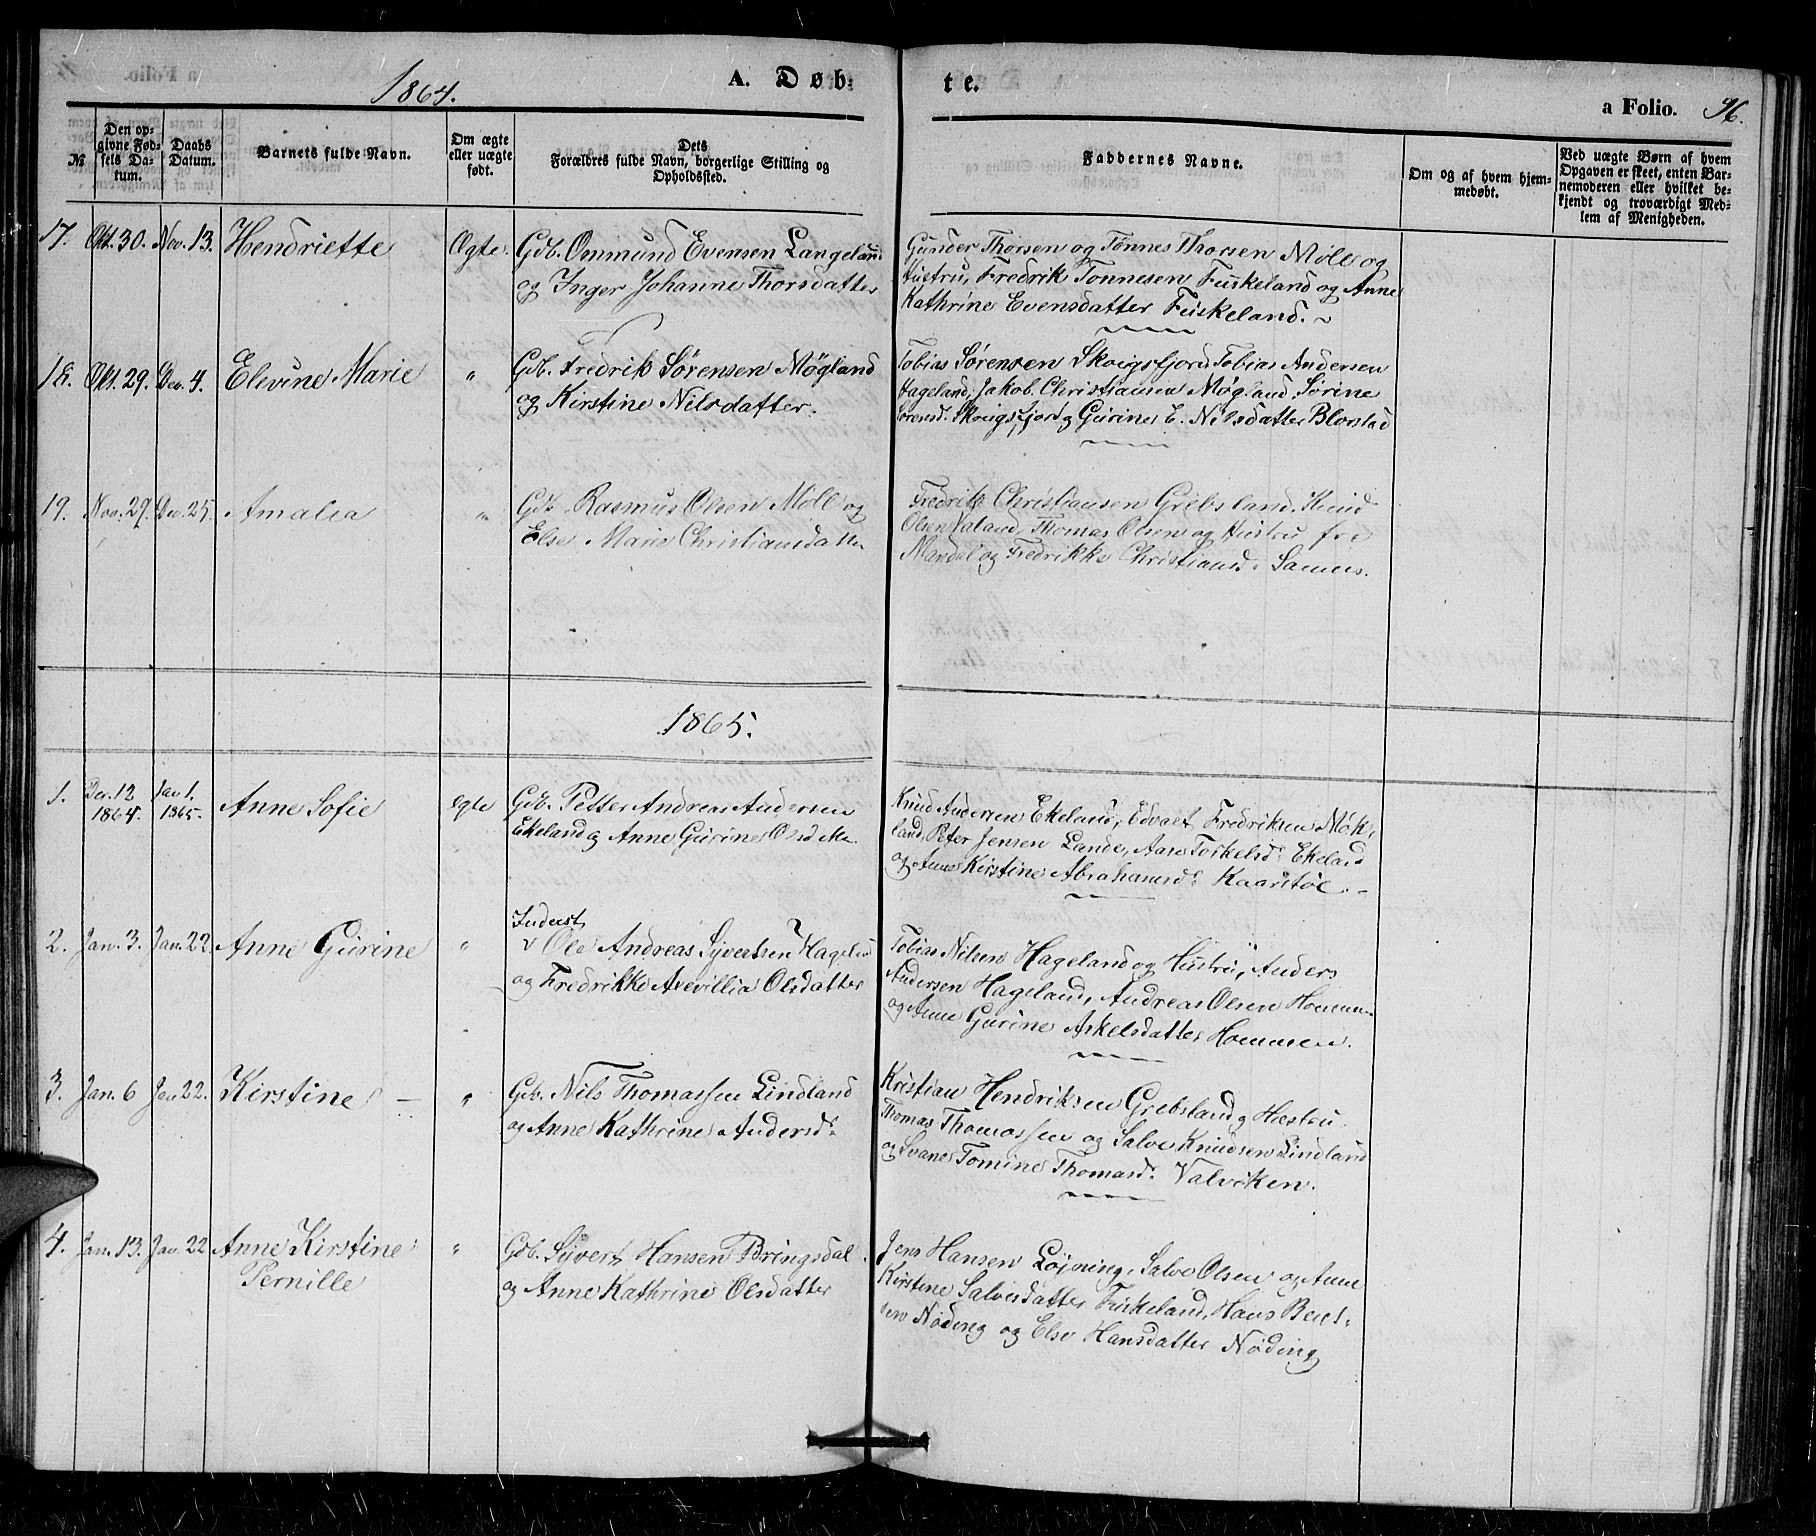 1864.
A. Døb-
te.
a Folio. 96.
№
Den op-
givne Fød-
sels Da-
tum.
Daabs
Datum.
Barnets fulde Navn.
Om ægte
eller uægte
født.
Dets
Forældres fulde Navn, borgerlige Stilling og
Opholdssted.
Faddernes Navne.
Om og af hvem hjem-
medøbt.
Ved uægte Børn af hvem
Opgaven er skeet, enten Bar-
nemoderen eller hvilket be-
kjendt og troværdigt Med-
lem af Menigheden.
17. Okt. 30. Nov. 13. Hendriette Ægte Gdb. Ommund Evensen Langeland
og Inger Johanne Thorsdatter
Gunder Thorsen og Tønnes Thorsen Møll og
Hustru, Fredrik Tønnesen Fuskeland og Anne
Kathrine Evensdatter Fuskeland.
18. Okt. 29. Dec. 4. Elevine Marie " Gdb. Fredrik Sørensen Møgland
og Kirstine Nilsdatter.
Tobias Sørensen Skoigsfjord, Tobias Andersen
Hageland, Jakob Christiansen Møgland, Sørine
Sørensd. Skoigsfjord og Gurine E. Nilsdatter Blørstad
19. Nov. 29. Dec. 25. Amalia " Gdb. Rasmus Olsen Møll og
Else Marie Christiansdatter
Fredrik Christiansen Grebsland, Knud
Olsen Valand, Thomas Olsen og Hustru fra
Mandal og Fredrikke Christiansd. Sannes.
1865.
1. Dec. 12
1864. Jan 1.
1865. Anne Sofie ægte Gdb. Petter Andreas Andersen
Ekeland og Anne Gurine Olsd.
Knud Andersen Ekeland, Edvalt Fredriksen Møk-
land, Peter Jensen Lande, Aase Torkelsd. Ekeland
og Anne Kirstine Abrahamsd. Kaarstøl.
2. Jan. 3. Jan. 22. Anne Gurine " Inderst
Ole Andreas Syvertsen Hageland
og Fredrikke Avevillia Olsdatter
Tobias Nilsen Hageland og Hustru, Anders
Andersen Hageland, Andreas Olsen Hommen
og Anne Gurine Askelsdatter Hommen.
3. Jan. 6 Jan 22. Kirstine " Gdb. Nils Thomassen Lindland
og Anne Kathrine Andersd.
Kristian Hendriksen Grebsland og Hustru
Thomas Thomassen og Salve Knudsen Lindland
og Svane Tomine Thomasd. Valviken.
4. Jan. 13. Jan. 22 Anne Kirstine
Pernille " Gdb. Syvert Hansen Bringsdal
og Anne Kathrine Olsdatter
Jens Hansen Løjning, Salve Olsen og Anne
Kirstine Salvesdatter Fuskeland, Hans Bent-
sen Nøding og Else Hansdatter Nøding